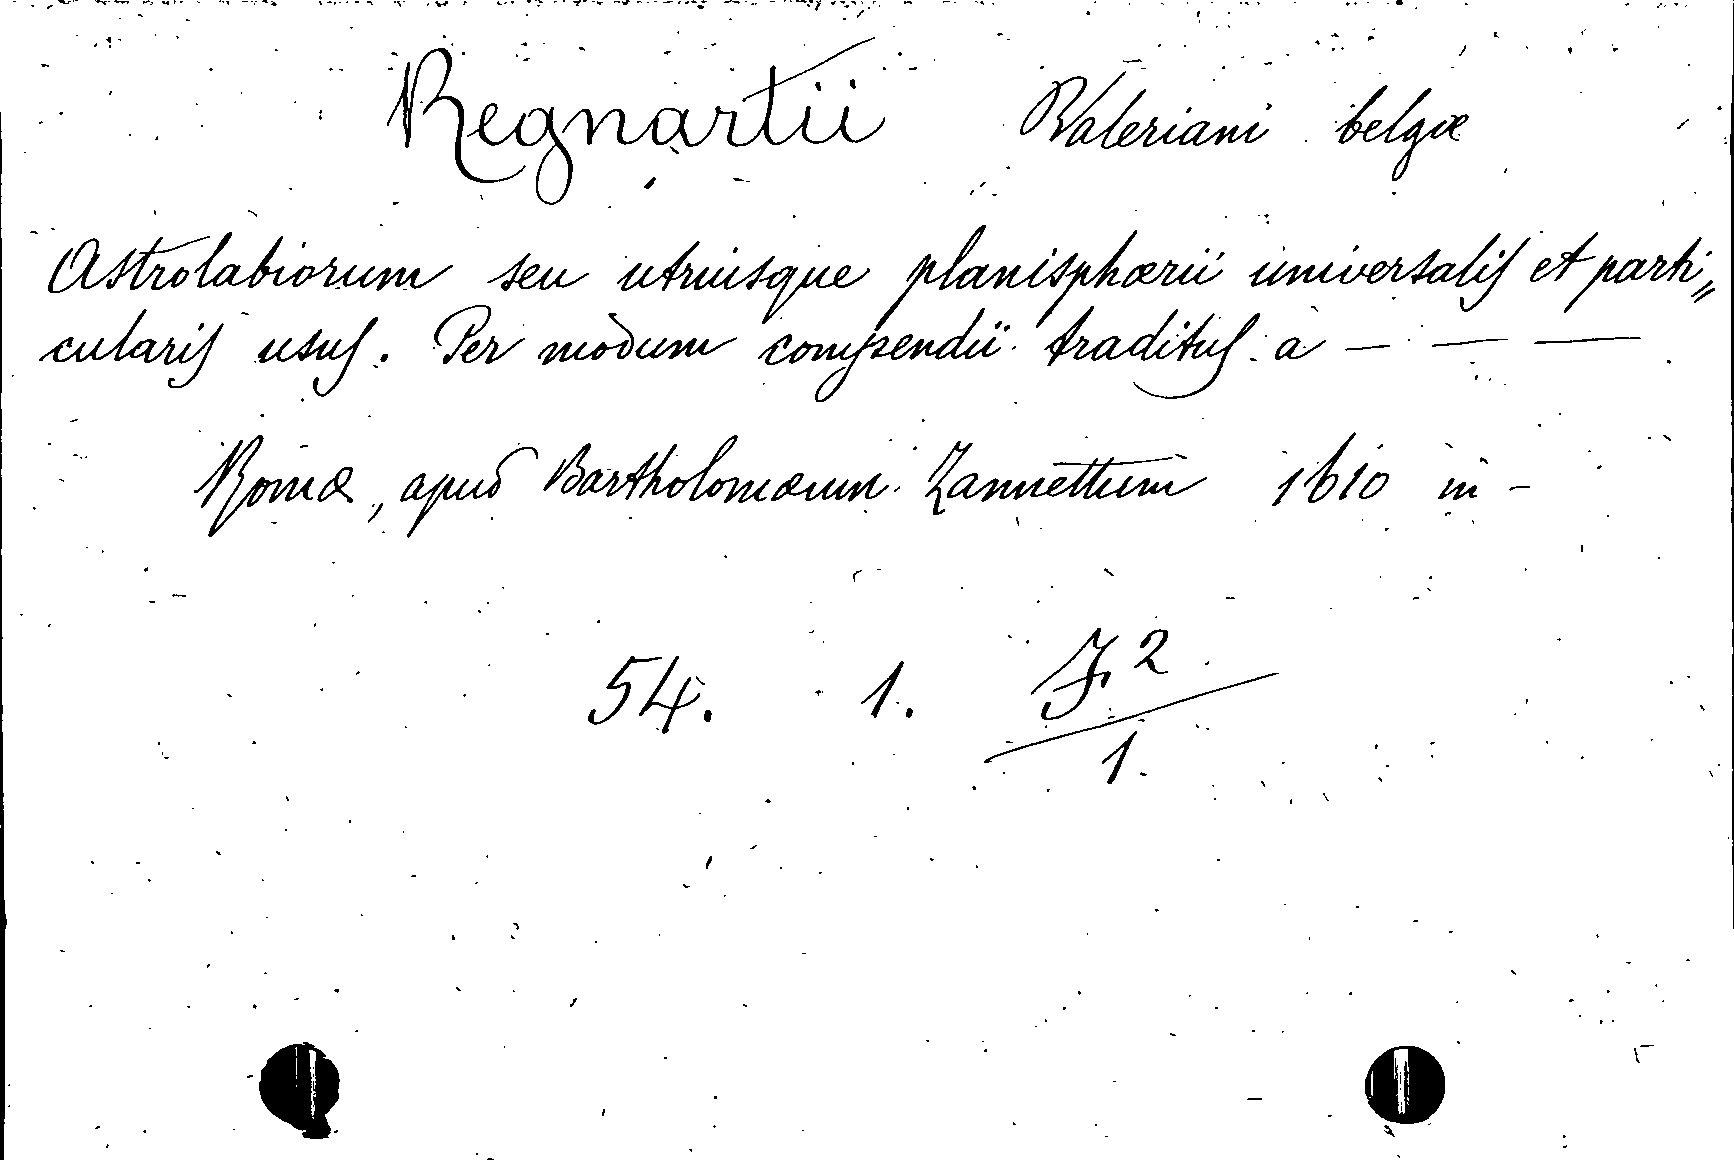 Regnartii Valeriani belgæ
Astrolabiorum seu utriusque planisphærii universalis et parti„
cularis usus. Per modum compendii traditus a — — —
Romæ, apud Bartholomæum Zannettum 1610 in -
54. 1. J. 2
1.